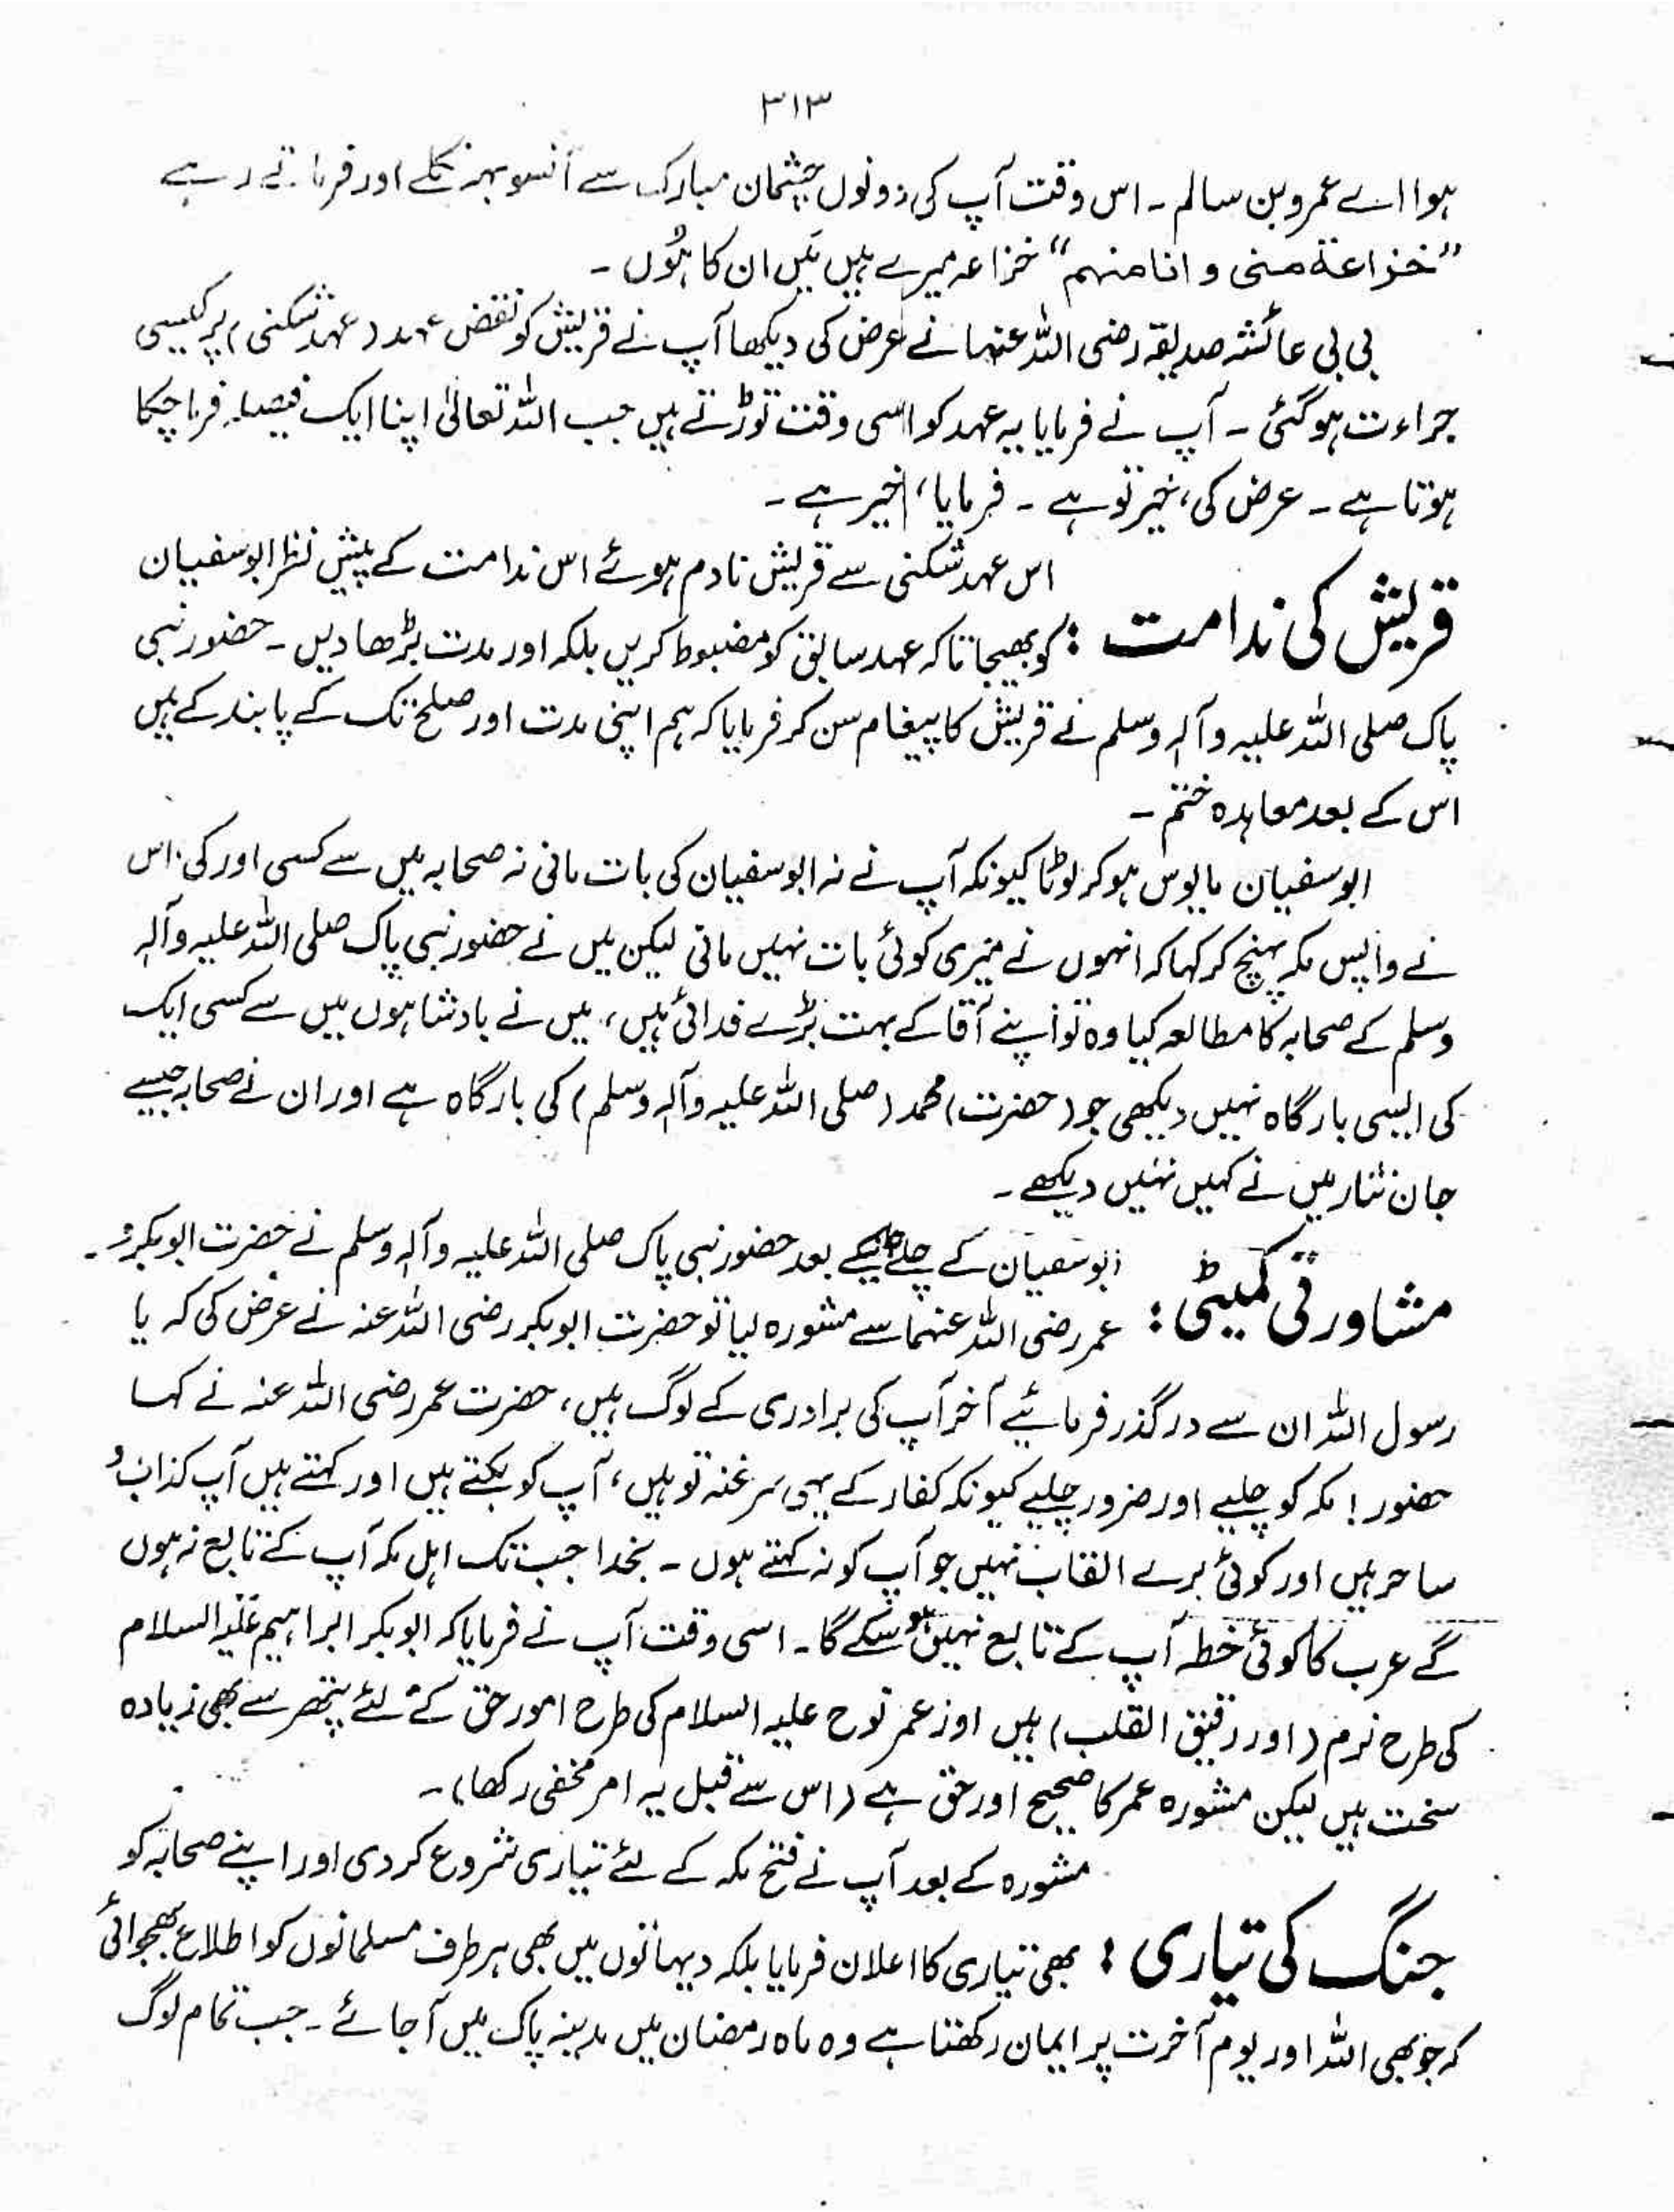 ۳۱۳
ہوا اے عمرو بن سالم ۔ اس وقت آپ کی دونوں چشمان مبارک سے آنسو بہہ نکلے اور فرماتے رہے
”خزاعة منی و انا منہم“ خزاعہ میرے ہیں مَیں ان کا ہُوں ۔
بی بی عائشہ صدیقہ رضی اللہ عنہا نے عرض کی دیکھا آپ نے قریش کو نقض عہد (عہد شکنی) پر کیسی
جراءت ہوگئی ۔ آپ نے فرمایا یہ عہد کو اسی وقت توڑتے ہیں جب اللہ تعالیٰ اپنا ایک فیصلہ فرما چکا
ہوتا ہے ۔ عرض کی، خیر تو ہے ۔ فرمایا، خیر ہے ۔
اس عہد شکنی سے قریش نادم ہوئے اس ندامت کے پیش نظر ابو سفیان
قریش کی ندامت : کو بھیجا تاکہ عہد سابق کو مضبوط کریں بلکہ اور مدت بڑھا دیں ۔ حضور نبی
پاک صلی اللہ علیہ وآلہ وسلم نے قریش کا پیغام سن کر فرمایا کہ ہم اپنی مدت اور صلح تک کے پابند کے ہیں
اس کے بعد معاہدہ ختم ۔
ابو سفیان مایوس ہو کر لوٹا کیونکہ آپ نے نہ ابو سفیان کی بات مانی نہ صحابہ میں سے کسی اور کی، اس
نے واپس مکہ پہنچ کر کہا کہ انہوں نے میری کوئی بات نہیں مانی لیکن میں نے حضور نبی پاک صلی اللہ علیہ وآلہ
وسلم کے صحابہ کا مطالعہ کیا وہ تو اپنے آقا کے بہت بڑے فدائی ہیں، میں نے بادشاہوں میں سے کسی ایک
کی ایسی بارگاہ نہیں دیکھی جو (حضرت) محمد (صلی اللہ علیہ وآلہ وسلم) کی بارگاہ ہے اور ان نے صحابہ جیسے
جان نثار میں نے کہیں نہیں دیکھے ۔
ابو سفیان کے چلے جانیکے بعد حضور نبی پاک صلی اللہ علیہ وآلہ وسلم نے حضرت ابوبکر و
مشاورتی کمیٹی : عمر رضی اللہ عنہما سے مشورہ لیا تو حضرت ابوبکر رضی اللہ عنہ نے عرض کی کہ یا
رسول اللہ ان سے درگذر فرمائیے آخر آپ کی برادری کے لوگ ہیں، حضرت عمر رضی اللہ عنہ نے کہا
حضور ! مکہ کو چلیے اور ضرور چلیے کیونکہ کفار کے یہی سرغنہ تو ہیں، آپ کو بکتے ہیں اور کہتے ہیں آپ کذاب و
ساحر ہیں اور کوئی برے القاب نہیں جو آپ کو نہ کہتے ہوں ۔ بخدا جب تک اہل مکہ آپ کے تابع نہ ہوں
گے عرب کا کوئی خطہ آپ کے تابع نہیں ہو سکے گا ۔ اسی وقت آپ نے فرمایا کہ ابوبکر ابراہیم علیہ السلام
کی طرح نرم (اور رقیق القلب) ہیں اور عمر نوح علیہ السلام کی طرح امور حق کے لئے پتھر سے بھی زیادہ
سخت ہیں لیکن مشورہ عمر کا صحیح اور حق ہے (اس سے قبل یہ امر مخفی رکھا) ۔
مشورہ کے بعد آپ نے فتح مکہ کے لئے تیاری شروع کر دی اور اپنے صحابہ کو
جنگ کی تیاری : بھی تیاری کا اعلان فرمایا بلکہ دیہاتوں میں بھی ہر طرف مسلمانوں کو اطلاع بھجوائی
کہ جو بھی اللہ اور یوم آخرت پر ایمان رکھتا ہے وہ ماہ رمضان میں مدینہ پاک میں آجائے ۔ جب تمام لوگ